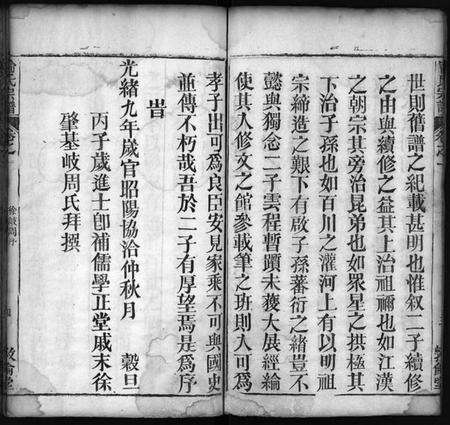 世則舊譜之紀載甚明也惟叙二子續修
之由與續修之益其上治祖禰也如江漢
之朝宗其旁治昆弟也如衆星之拱極其
下治子孫也如百川之灌河上有以明祖
宗締造之艱下有啟子孫蕃衍之緒豈不
懿與獨念二子雲程暫躓未獲大展經綸
使其人修文之館參載筆之班則入可爲
孝子出可爲良臣安見家乘不可與國史
並傳不朽哉吾於二子有厚望焉是爲序
旹
光緒九年歲官昭陽協洽仲秋月 穀旦
丙子歲進士卽補儒學正堂戚末徐
肇基岐周氏拜撰